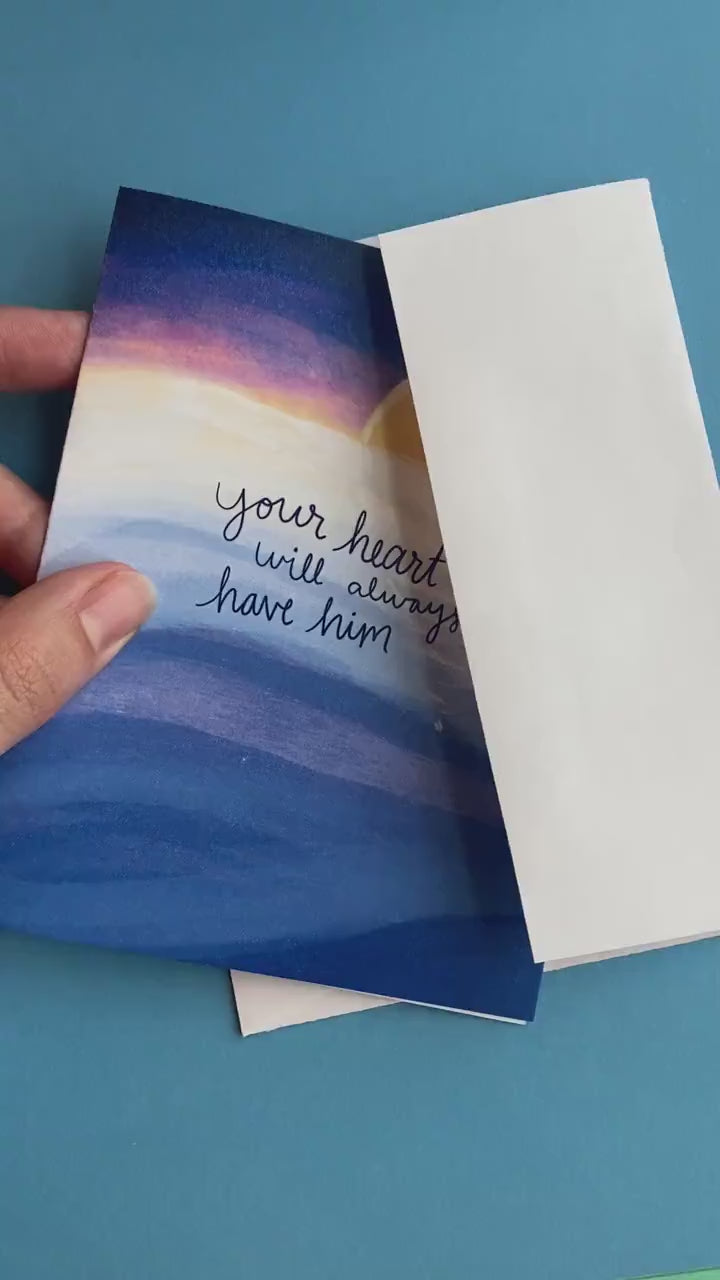 your heart
will always
have him